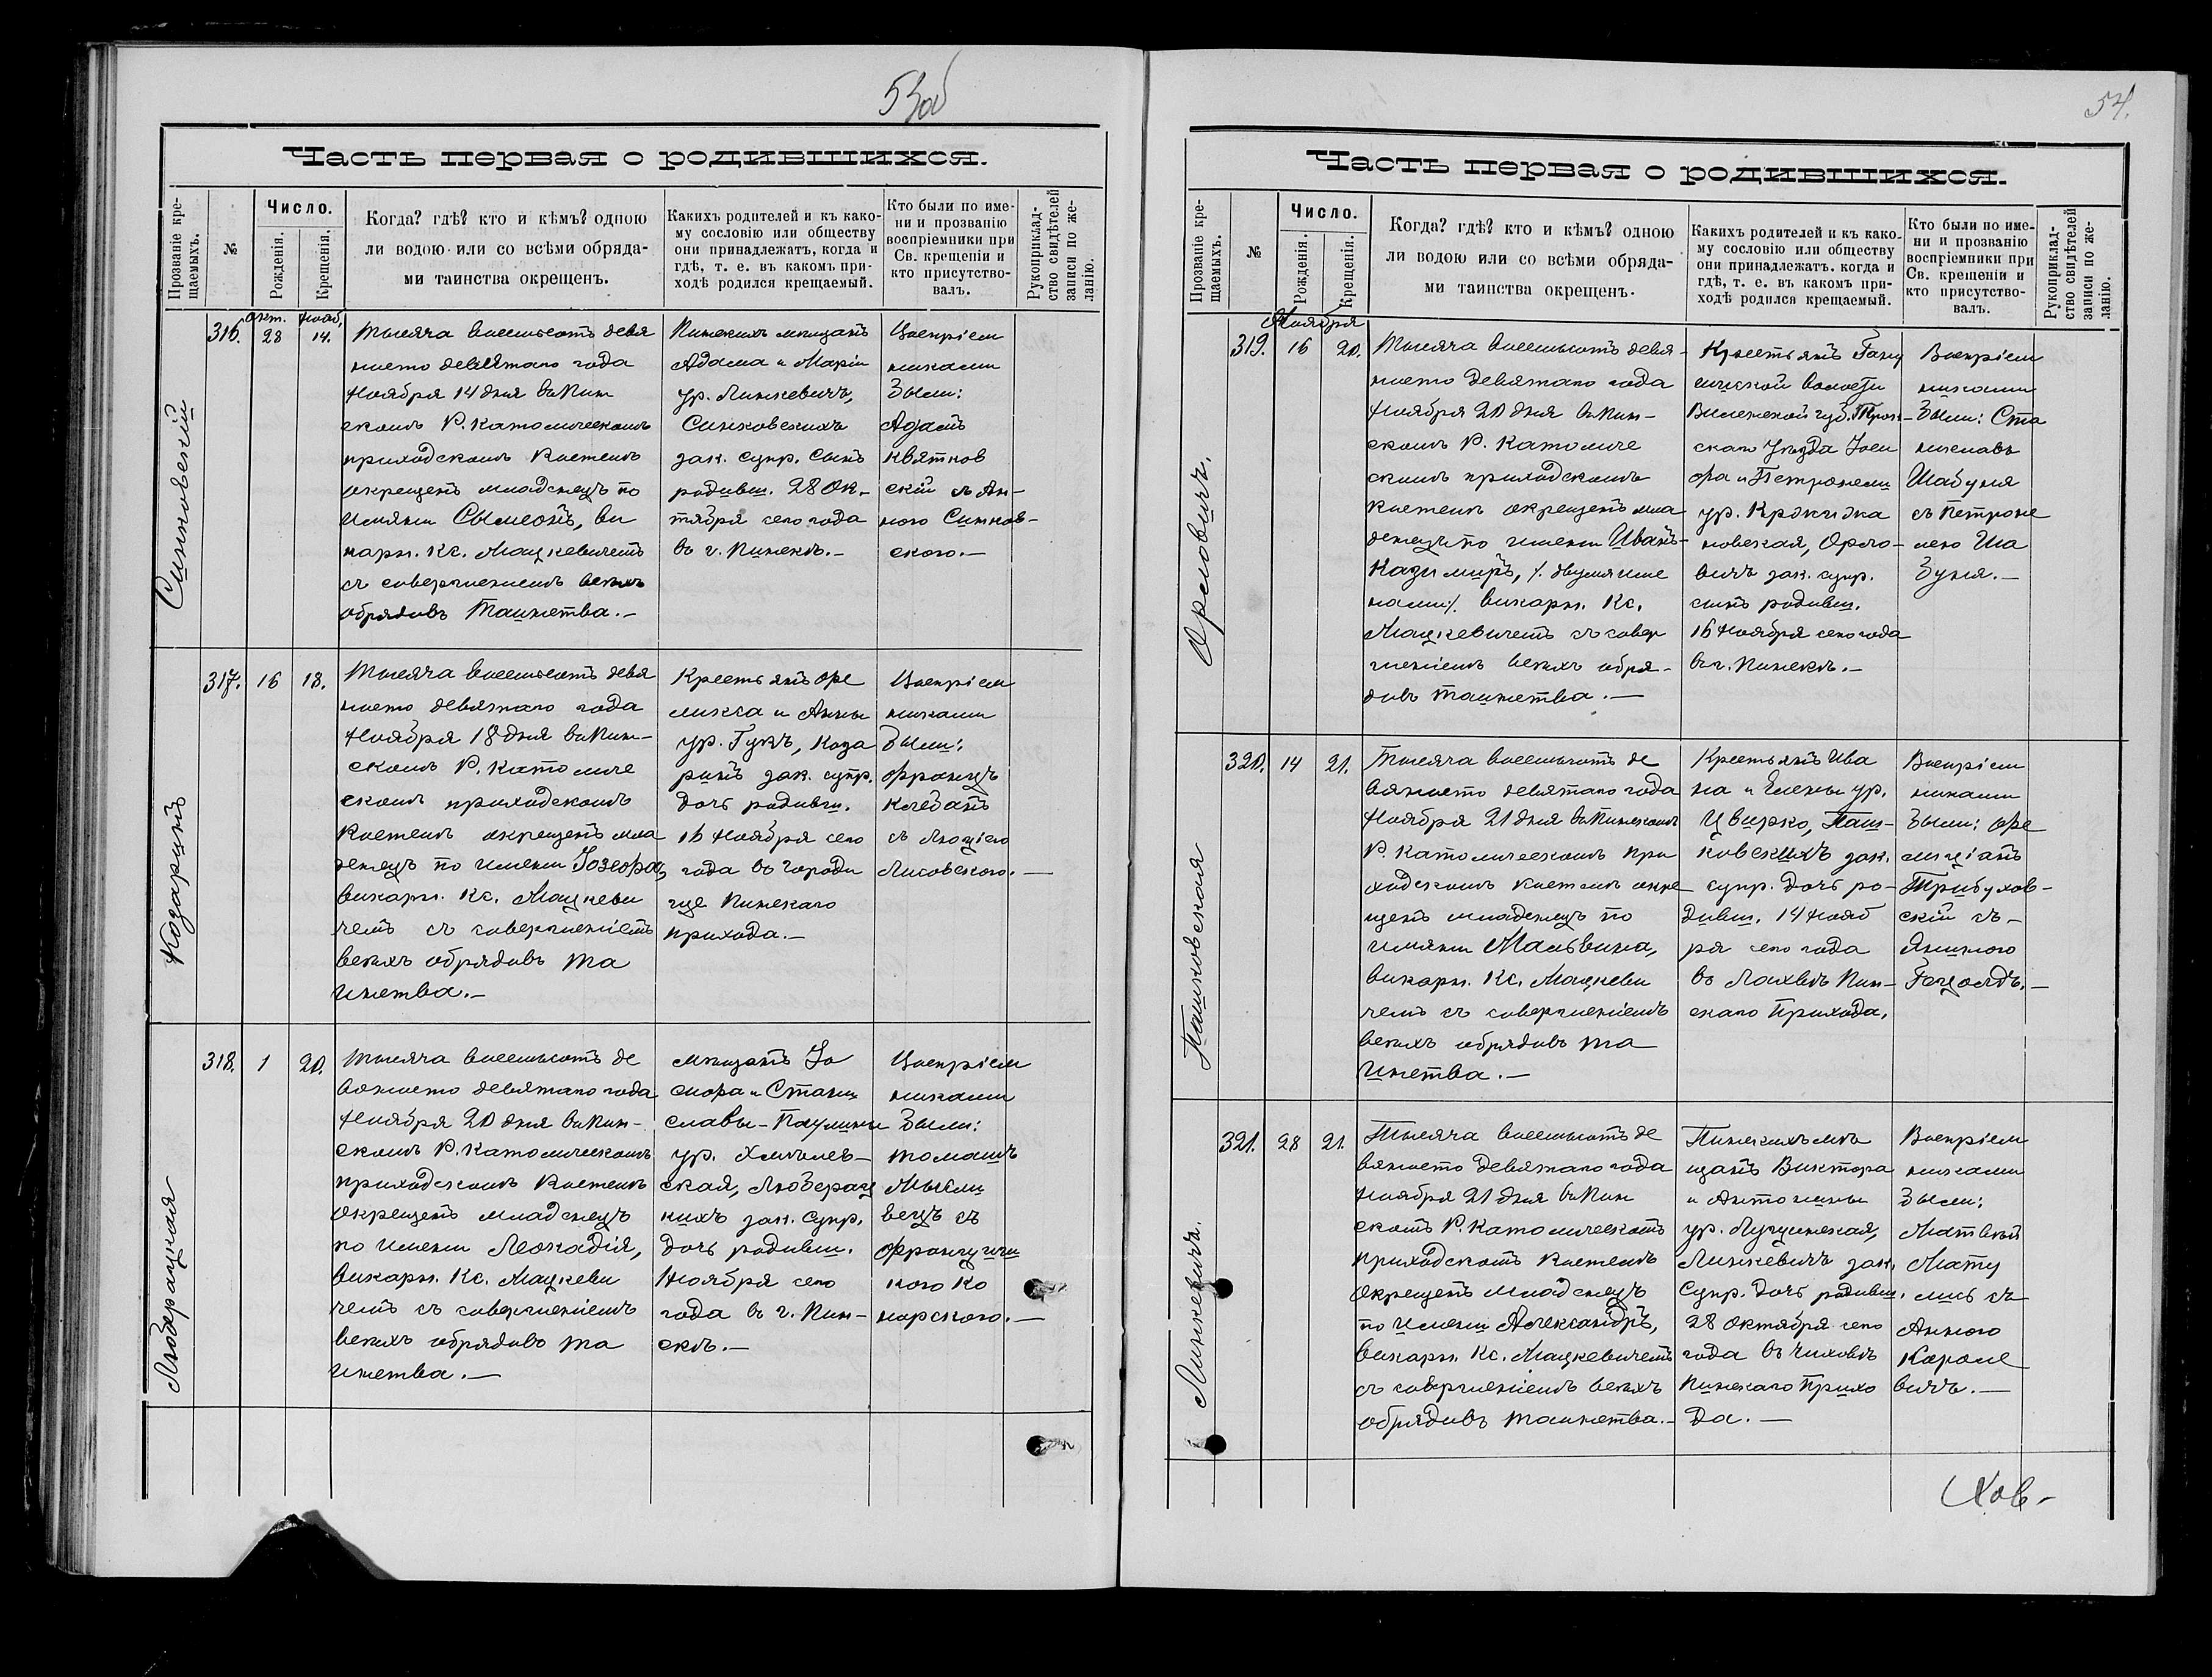 53об
Часть первая о родившихся.
Прозваніе кре-
щаемыхъ.
№
Число.
Рожденія.
Крещенія.
Когда? гдѣ? кто и кѣмъ? одною
ли водою или со всѣми обряда-
ми таинства окрещенъ.
Какихъ родителей и къ како-
му сословію или обществу
они принадлежатъ, когда и
гдѣ, т. е. въ какомъ при-
ходѣ родился крещаемый.
Кто были по име-
ни и прозванію
воспріемники при
Св. крещеніи и
кто присутство-
валъ.
Рукоприклад-
ство свидѣтелей
записи по же-
ланію.
Синковскій
316.
Окт.
28
Нояб.
14.
Тысяча восемьсотъ девя
носто девятаго года
Ноября 14 дня въ Пин
скомъ Р. Католическомъ
приходскомъ Костелѣ
окрещенъ младенецъ по
имени Сымеонъ, ви
карн. Кс. Мацкевичемъ
съ совершеніемъ всѣхъ
обрядовъ Таинства.—
Пинскихъ мѣщанъ
Адама и Маріи
ур. Линкевичъ,
Синковскихъ
зак. супр. сынъ
родивш. 28 Ок-
тября сего года
въ г. Пинскѣ.—
Воспріем
никами
были:
Адамъ
Квятков
скій съ Ан-
ною Синков-
скою.—
Козаринъ
317.
16
18.
Тысяча восемьсотъ девя
носто девятаго года
Ноября 18 дня въ Пин-
скомъ Р. Католиче
скомъ приходскомъ
Костелѣ окрещенъ мла
денецъ по имени Іозефа,
викарн. Кс. Мацкеви
чемъ съ совершеніемъ
всѣхъ обрядовъ та
инства.—
Крестьянъ Фе
ликса и Анны
ур. Гукъ, Коза
ринъ зак. супр.
дочь родивш.
16 Ноября сего
года въ Городи
ще Пинскаго
прихода.—
Воспріем
никами
были:
Францъ
Клебанъ
съ Люціею
Лисовскою.—
Люберацкая
318.
1
20.
Тысяча восемьсотъ де
вяносто девятаго года
Ноября 20 дня въ Пин-
скомъ Р. Католическомъ
приходскомъ Костелѣ
окрещенъ младенецъ
по имени Леокадія,
викарн. Кс. Мацкеви
чемъ съ совершеніемъ
всѣхъ обрядовъ та
инства.—
мѣщанъ Іо
сифа и Стани
славы-Паулины
ур. Хмѣлев-
ская, Люберац
кихъ зак. супр.
дочь родивш.
1 Ноября сего
года въ г. Пин-
скѣ.—
Воспріем
никами
были:
Томашъ
Мысли
вецъ съ
Францишк
кою Ко
нарскою.—
54.
Часть первая о родившихся.
Прозваніе кре-
щаемыхъ.
№
Число.
Рожденія.
Крещенія.
Когда? гдѣ? кто и кѣмъ? одною
ли водою или со всѣми обряда-
ми таинства окрещенъ.
Какихъ родителей и къ како-
му сословію или обществу
они принадлежатъ. когда и
гдѣ, т. е. въ какомъ при-
ходѣ родился крещаемый.
Кто были по име-
ни и прозванію
воспріемники при
Св. крещеніи и
кто присутство-
валъ.
Рукоприклад-
ство свидѣтелей
записи по же-
ланію.
Орловичъ.
319.
Ноября
16
20.
Тысяча восемьсотъ девя-
носто девятаго года
Ноября 20 дня въ Пин-
скомъ Р. Католиче
скомъ приходскомъ
Костелѣ окрещенъ мла
денецъ по имени Иванъ-
Казимиръ, /. двумя име
нами ./ викарн. Кс.
Мацкевичемъ съ совер
шеніемъ всѣхъ обря-
довъ таинства.—
Крестьянъ Гану
шиской волости
Виленской губ. Трок-
скаго уѣзда Іоси
фа и Петронели
ур. Кржижа
новская, Орло-
вичъ зак. супр.
сынъ родивш.
16 Ноября сего года
въ г. Пинскѣ.—
Воспріем
никами
были: Ста
ниславъ
Шабуня
съ Петроне
лею Ша
буня.—
Пашковская
320.
14
21.
Тысяча восемьсотъ де
вяносто девятаго года
Ноября 21 дня въ Пинскомъ
Р. Католическомъ при
ходскомъ костелѣ окре
щенъ младенецъ по
имени Мальвина,
викарн. Кс. Мацкеви
чемъ съ совершеніемъ
всѣхъ обрядовъ та
инства.—
Крестьянъ Ива
на и Елены ур.
Цвирко, Паш-
ковскихъ зак.
супр. дочь ро-
дивш. 14 Нояб
ря сего года
въ Лохвѣ Пин-
скаго Прихода.
Воспріем
никами
были: Фе
лиціанъ
Трибухов-
скій съ-
Яниною
Гецольдъ.—
Линкевичъ.
321.
28
21.
Тысяча восемьсотъ де
вяносто девятаго года
Ноября 21 дня въ Пин
скомъ Р. Католическомъ
приходскомъ Костелѣ
окрещенъ младенецъ
по имени Александръ,
викарн. Кс. Мацкевичемъ
съ совершеніемъ всѣхъ
обрядовъ таинства.—
Пинскихъ мѣ
щанъ Виктора
и Антонины
ур. Лущинская,
Линкевичъ зак.
супр. дочь родивш.
28 Октября сего
года въ Чиховѣ
Пинскаго Прихо
да.—
Воспріем
никами
были:
Матвѣй
Мату
лись съ
Анною
Кароле
вичъ.—